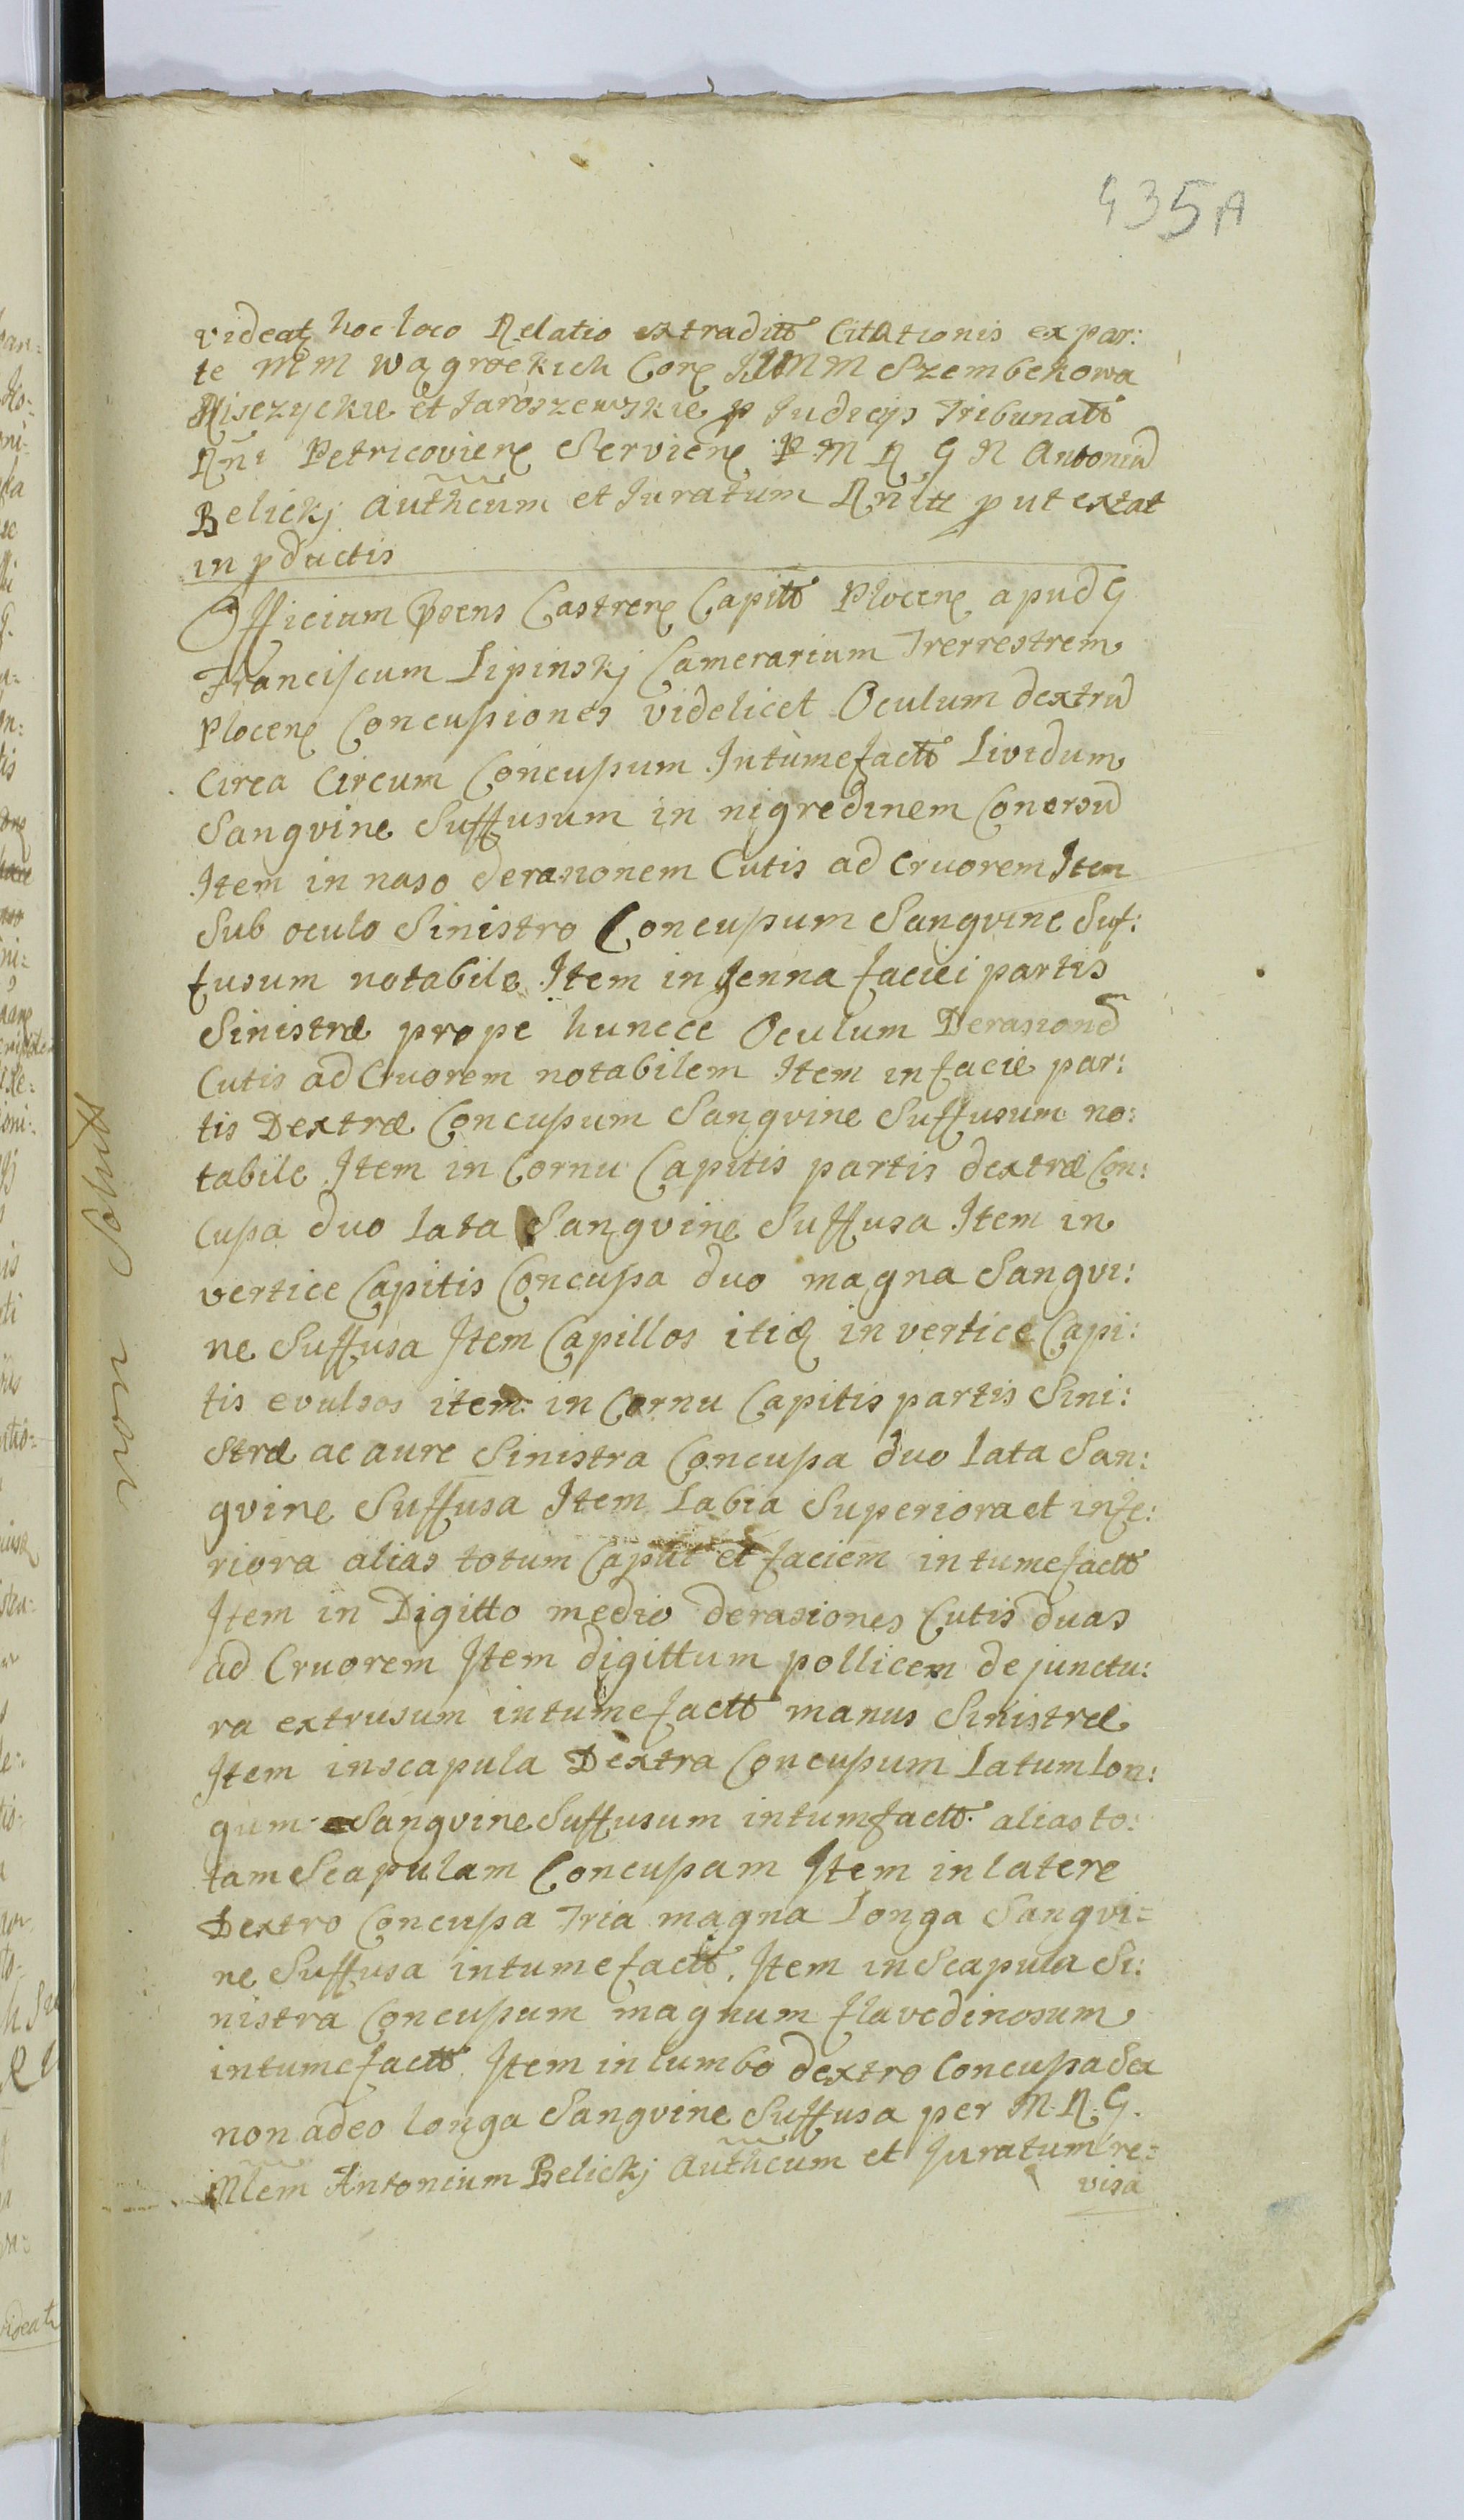 435A
videatz hoc loco Relatio extraditt Citationis ex par:
te MM Wągrockich Cor IIMM Szembekowa
Misczyckie et Jaroszewskie p Judicijs Tribunatt
Rni Petricovien Servien P M R G R Antoniu
Belickj Authcum et Juratum put extat
in pductis
Officium Psens Castren Capitt Plocen apud G
Franciscum Lipinskj Camerarium Trerrestrem
Plocen Concussiones videlicet Oculum dextru
Circa Circum Concussum Intumefactt Lividum
Sangvine Suffusum in nigredinem Conersu
Item in naso derasionem Cutis ad Cruorem Item
Sub oculo Sinistro Concussum Sangvine Suf:
fusum notabile Item in Jenna faciei partis
Sinistræ prope huncce Oculum Derasione
Cutis ad Cruorem notabilem Item in facie par:
tis Dextræ Concussum Sangvine Suffusum no:
tabile Item in Cornu Capitis partis dextræ Con:
cussa duo lata Sangvine Suffusa Item in
vertice Capitis Concussa duo magna Sangvi:
ne Suffusa Item Capillos itid in vertice Capi:
tis evulsos item in Cornu Capitis partis Sini:
stræ ac aure Sinistra Concussa duo lata San:
gvine Suffusa Item Labia Superiora et infe:
riora alias totum Caput et faciem intumefactt
Item in Digitto medio derasiones Cutis duas
ad Cruorem Item digittum pollicem de junctu:
ra extrusum intumefactt manus Sinistræ
Item in scapula Dextra Concussum Latum lon:
gum Sangvine Suffusum intumfactt alias to:
tam Scapulam Concussam Item in latere
Dextro Concussa Tria magna Longa Sangvi=
ne Suffusa intumefactt. Item in Scapula Si:
nistra Concussum magnum flavedinosum
intumefactt Item in lumbo dextro Concussa Sex
non adeo longa Sangvine Suffusa per M. R. G.
Mlem Antonium Belickj Authcum et Juratum re=
visa
non Solutt